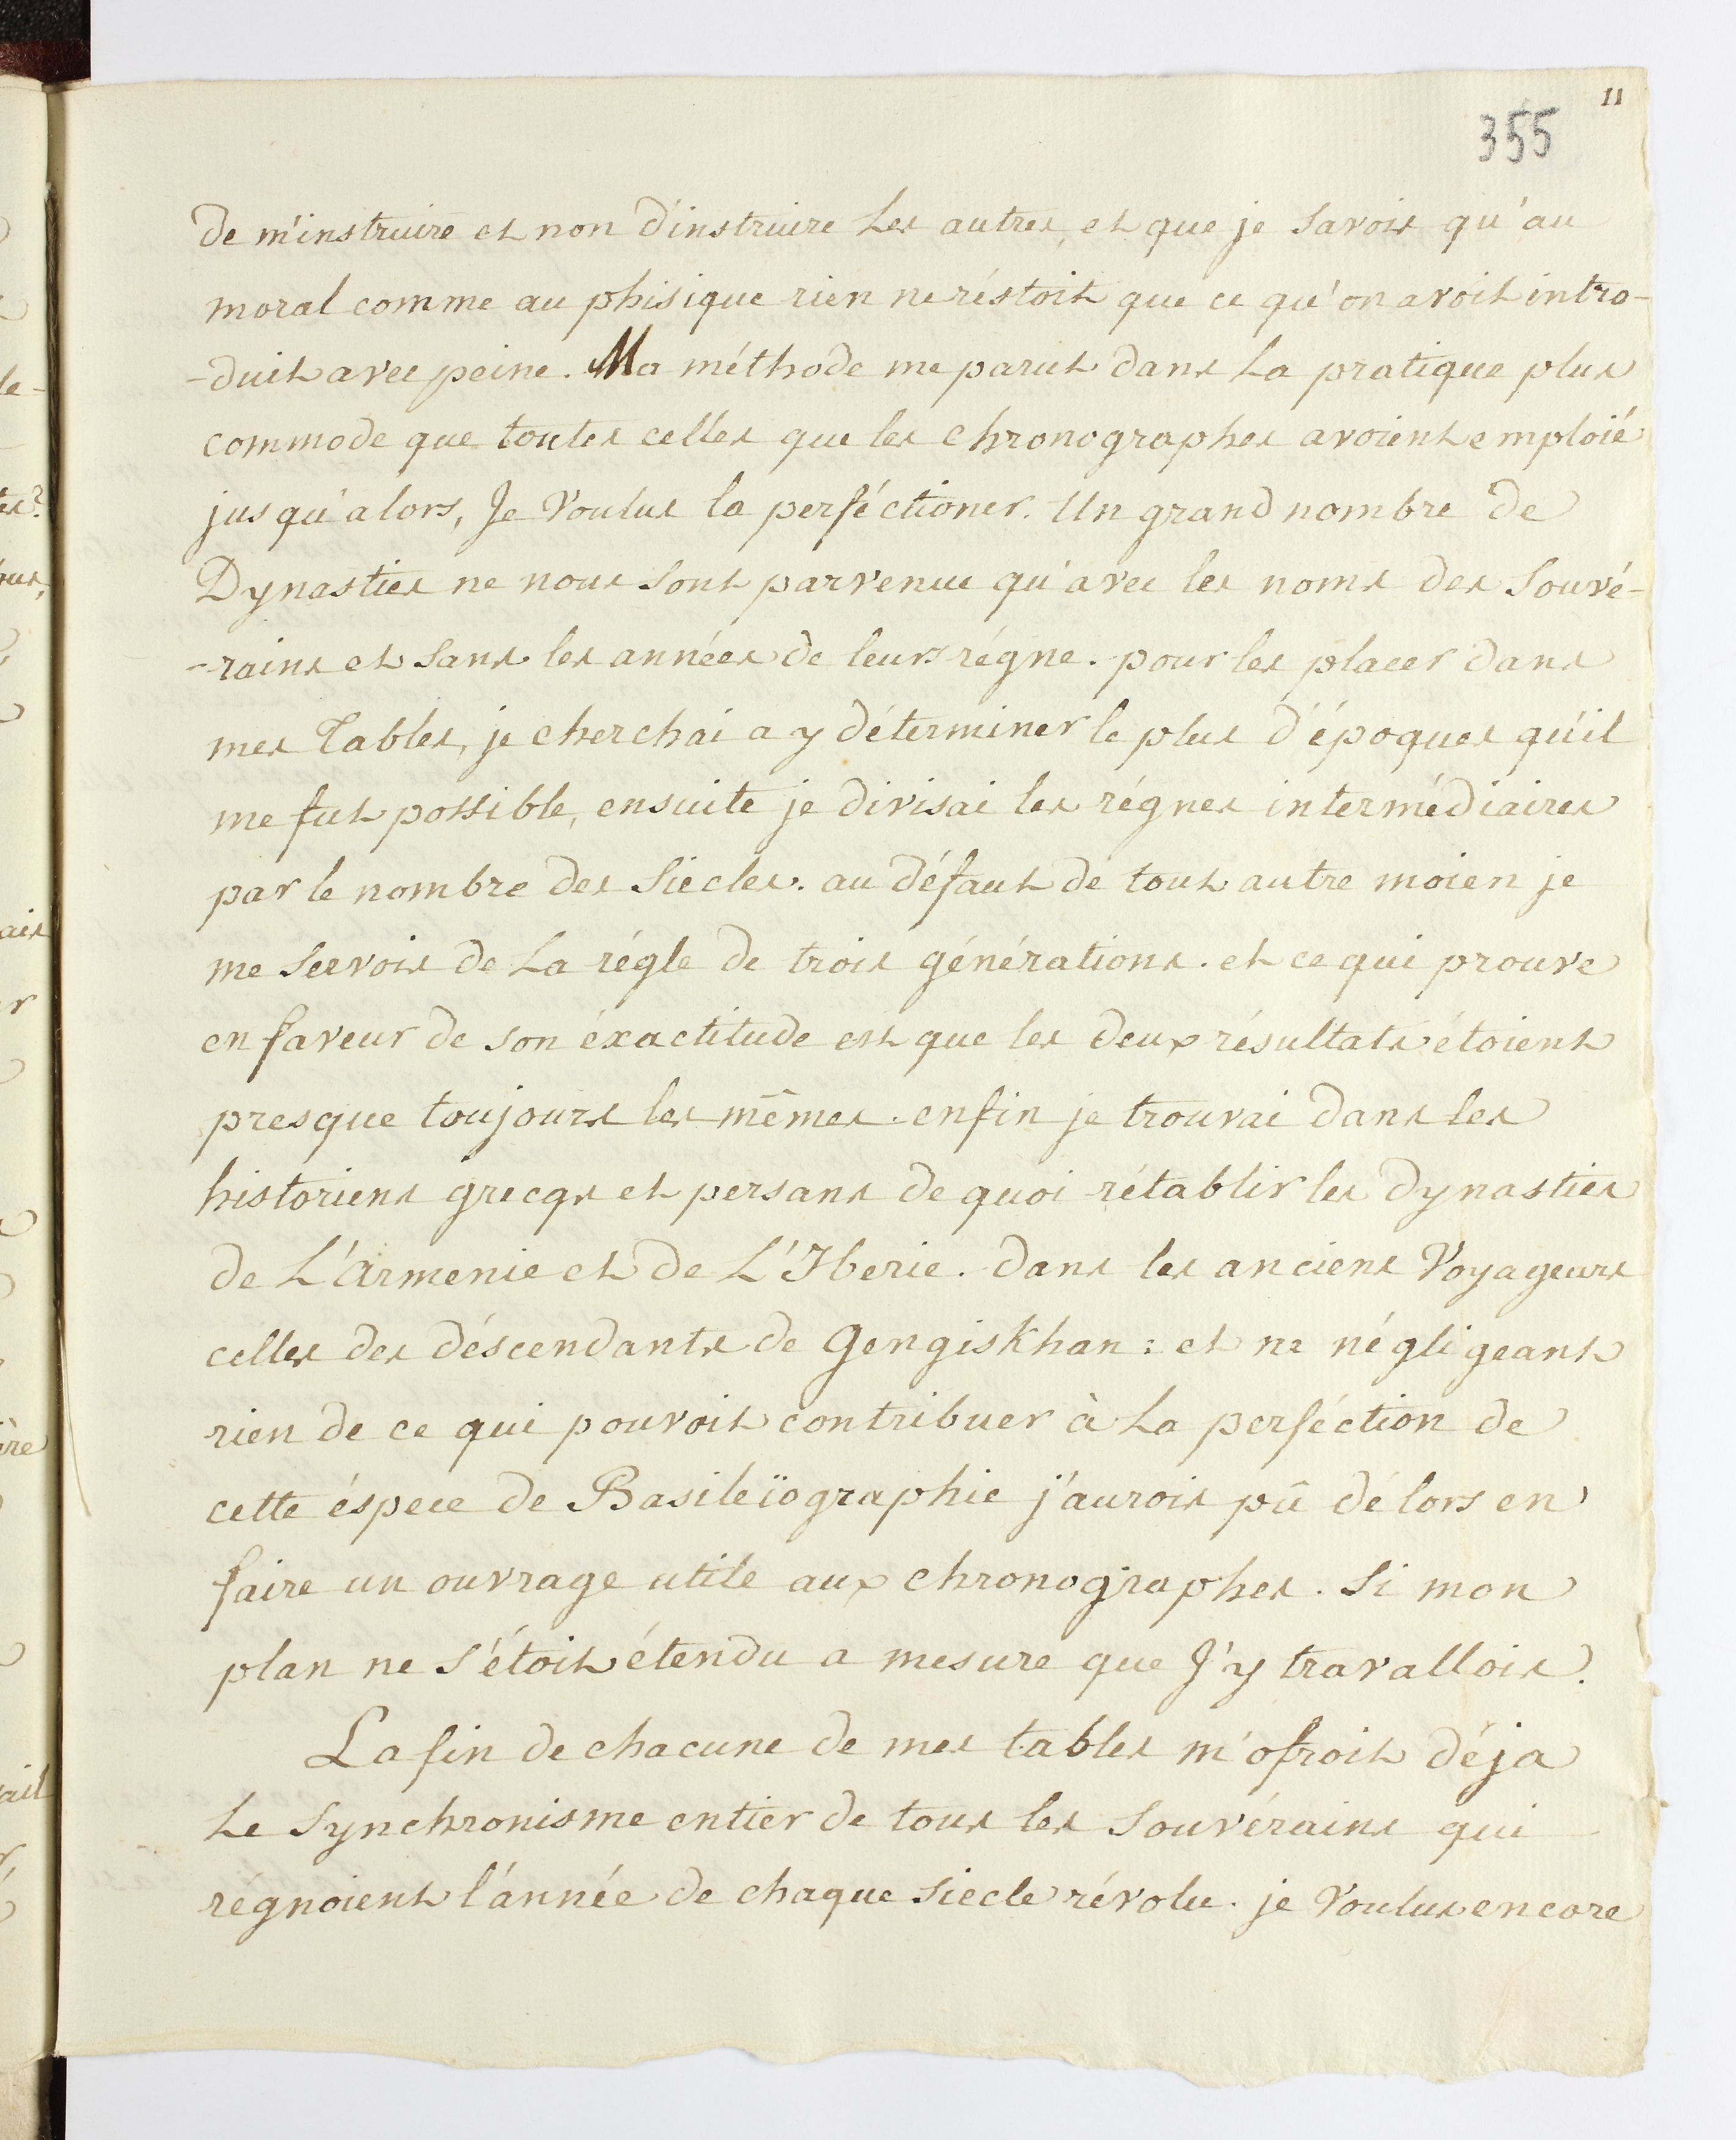 11
355
de m'instruire et non d'instruire Les autres, et que je Savois qu'au
moral comme au phisique rien ne réstoit que ce qu'on avoit intro-
-duit avec peine. Ma méthode me parut dans La pratique plus
commode que toutes celles que les Chronographes avoient emploié
jusqu'alors, Je Voulus la perféctioner. Un grand nombre de
Dynasties ne nous Sont parvenue qu'avec les noms des Souvé-
-rains et Sans les années de leurs régne. pour les placer dans
mes Tables, je cherchai a y déterminer le plus d'époques qu'il
me fut possible, ensuite je divisai les régnes intermédiaires
par le nombre des Siecles. au défaut de tout autre moien je
me Servois de La régle de trois générations. et ce qui prouve
en faveur de son éxactitude est que les deux résultats étoient
presque toujours les mêmes. enfin je trouvai dans les
historiens grecqs et persans de quoi rétablir les Dynasties
de L'Armenie et de L'Iberie. dans les anciens Voyageurs
celles des déscendants de Gengiskhan : et ne négligeant
rien de ce qui pouvoit contribuer à La perféction de
cette éspece de Basileïographie j'aurois pû délors en
faire un ouvrage utile aux Chronographes. Si mon
plan ne S'étoit étendu a mesure que J'y travallois.
La fin de chacune de mes tables m'ofroit déja
Le Synchronisme entier de tous les Souvérains qui
régnoient l'année de chaque Siecle révolu. je Voulus encore